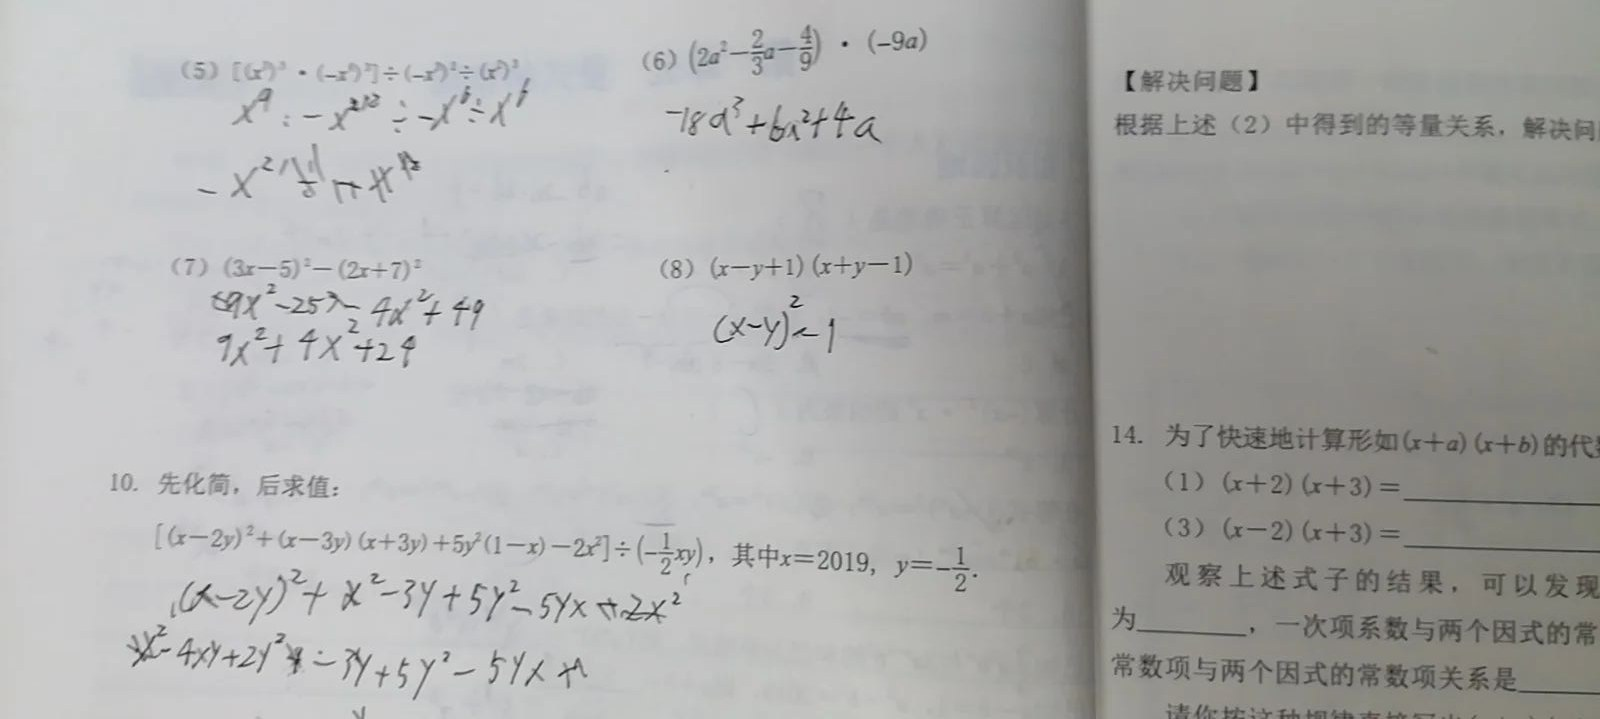 (5) [(x³)³·(-x⁴)³]÷(-x³)²÷(x²)³
x⁹ · -x¹² ÷ -x⁶ ÷ x⁶
- x²¹
(6) (2a²-2/3a-4/9)·(-9a)
-18a³+6a²+4a
(7) (3x-5)²-(2x+7)²
9x²-25)- 4x²+49
9x²+4x²+24
(8) (x-y+1)(x+y-1)
(x-y)²-1
10. 先化简，后求值：
[(x-2y)²+(x-3y)(x+3y)+5y²(1-x)-2x²]÷(-1/2xy)，其中x=2019，y=-1/2.
(x-2y)²+x²-3y+5y²-5yx+2x²
x²-4xy+2y²-3y+5y²-5yx+
【解决问题】
根据上述（2）中得到的等量关系，解决问
14. 为了快速地计算形如(x+a)(x+b)的代
(1) (x+2)(x+3)=
(3) (x-2)(x+3)=
观察上述式子的结果，可以发现
为，一次项系数与两个因式的常
常数项与两个因式的常数项关系是
请你按这种规律直接写出